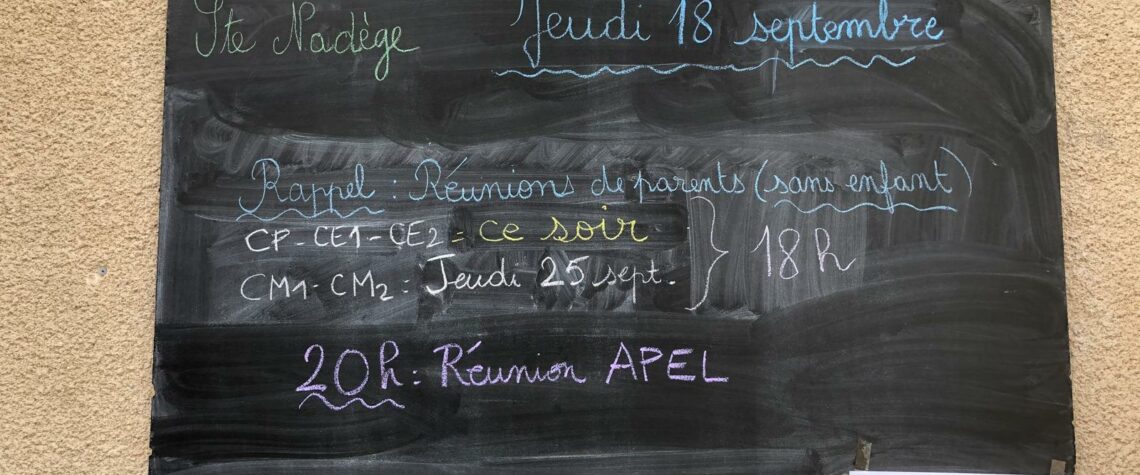 Ste Nadège
Jeudi 18 septembre
Rappel : Réunions de parents (sans enfant)
CP - CE1 - CE2 = ce soir
CM1 - CM2 : Jeudi 25 sept. } 18h
20h : Réunion APEL